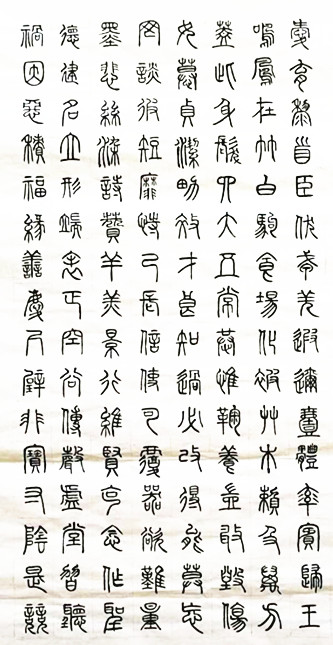 愛育黎首臣伏戎羌遐邇壹體率賓歸王
鳴鳳在竹白駒食場化被艸木賴及萬方
蓋此身髮四大五常恭惟鞠養豈敢毀傷
女慕貞潔男效才良知過必改得能莫忘
罔談彼短靡恃己長信使可覆器欲難量
墨悲絲染詩贊羊羔景行維賢克念作聖
德建名立形端表正空谷傳聲虛堂習聽
禍因惡積福緣善慶尺璧非寶寸陰是競